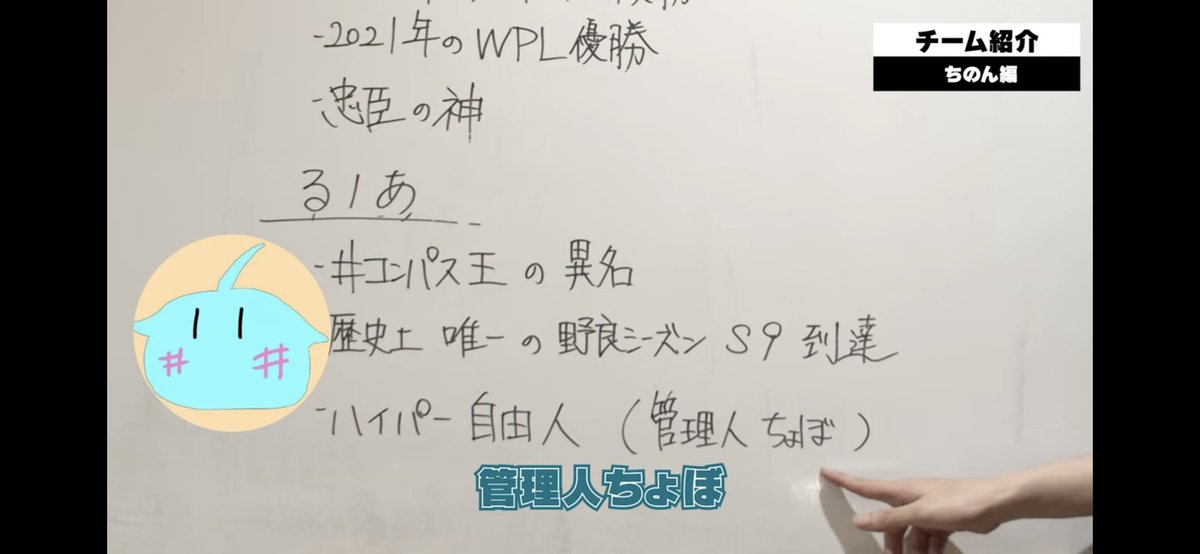 ・2021年のWPL優勝
・忠臣の神
るーあ
・#コンパス王の異名
歴史上 唯一の野良シーズン S9 到達
・ハイパー自由人 (管理人ちょぼ)
管理人ちょぼ
チーム紹介
ちのん編